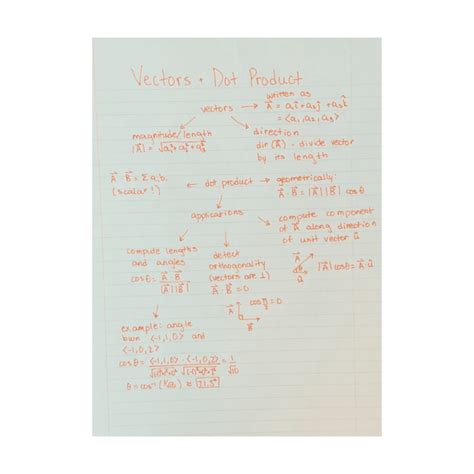 Vectors + Dot Product
vectors → written as
A⃗ = a₁î + a₂ĵ + a₃k̂
= ⟨a₁, a₂, a₃⟩
magnitude/length
|A⃗| = √a₁² + a₂² + a₃²
direction
dir (A⃗) - divide vector
by its length
A⃗ · B⃗ = Σ aᵢbᵢ
(scalar!)
dot product
geometrically:
A⃗ · B⃗ = |A⃗||B⃗| cos θ
applications
compute lengths
and angles
cos θ = A⃗ · B⃗ / |A⃗||B⃗|
detect
orthogonality
(vectors are ⊥)
A⃗ · B⃗ = 0
A⃗
B⃗
cos π/2 = 0
compute component
of A⃗ along direction
of unit vector û
A⃗
û
|A⃗| cos θ = A⃗ · û
example: angle
btwn ⟨-1,1,0⟩ and
⟨-1,0,2⟩